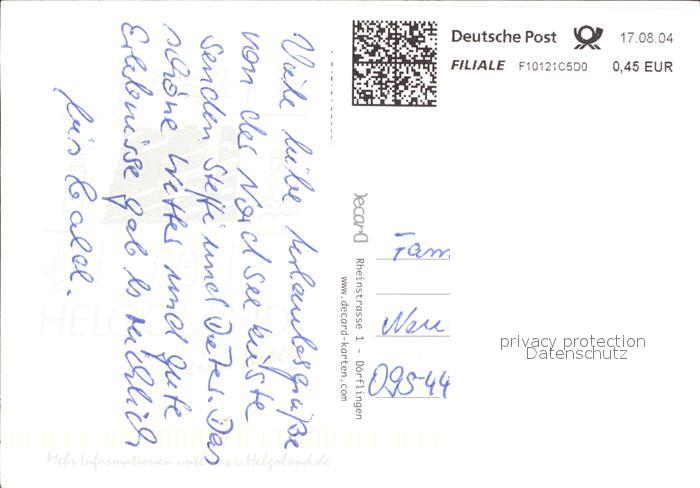 Deutsche Post
17.08.04
FILIALE F10121C5D0 0,45 EUR
Viele liebe Urlaubsgrüße
von der Nordseeküste
senden Steffi und Dieter. Das
schöne Wetter und gute
Erlebnisse gab es reichlich
bis bald.
Decard
Rheinstrasse 1 - Dörflingen
www.decard-karten.com
Fam
Neu
09544
privacy protection
Datenschutz
HELGOLAND
Mehr Informationen unter www.Helgoland.de